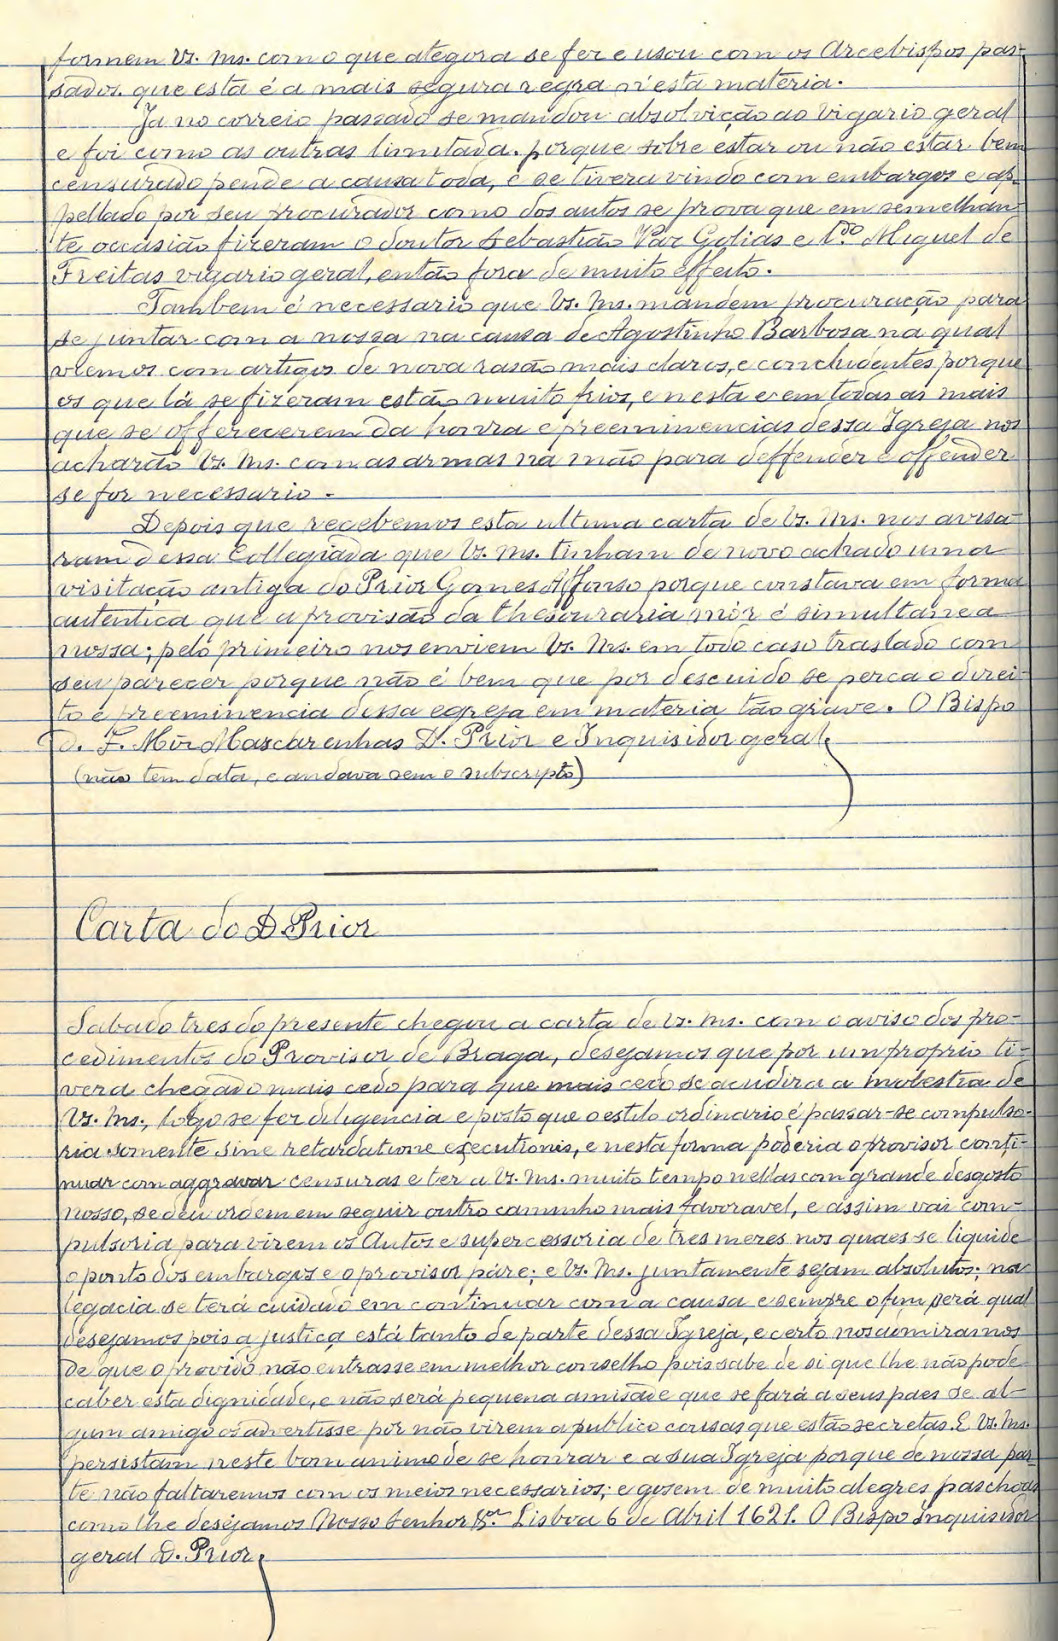 formem Vs. Ms. com o que ategora se fez e usou com os Arcebispos pas-
sados, que esta é a mais segura regra n'esta materia.
Ja no correio passado se mandou absolvição ao vigario geral
e foi como as outras limitada, porque sobre estar ou não estar bem
censurado pende a causa toda, e se tivera vindo com embargos e ap-
pellado por seu procurador como dos autos se prova que em semelhan-
te occasião fizeram o doutor Sebastião Vaz Golias e l.do Miguel de
Freitas vigario geral, então fora de muito effeito.
Tambem é necessario que Vs. Ms. mandem procuração para
se juntar com a nossa na causa de Agostinho Barbosa na qual
viemos com artigos de nova rasão mais claros, e concludentes porque
os que lá se fizeram estão muito frios, e nesta e em todas as mais
que se offerecerem da honra e preeminencias dessa Igreja nos
acharão Vs. Ms. com as armas na mão para deffender e offender
se for necessario.
Depois que recebemos esta ultima carta de Vs. Ms. nos avisa-
ram dessa Collegiada que Vs. Ms. tinham de novo achado uma
visitação antiga do Prior Gomes Affonso porque constava em forma
autentica que a provisão da thesouraria mór é simultanea
nossa; pelo primeiro nos enviem Vs. Ms. em todo caso traslado com
seu parecer porque não é bem que por descuido se perca o direi-
to e preeminencia dessa egreja em materia tão grave. O Bispo
D. F. Mĩz Mascarenhas D. Prior e Inquisidor geral
(não tem data, e andava sem o subscripto)
Carta do D. Prior
Sabado tres do presente chegou a carta de Vs. Ms. com o aviso dos pro-
cedimentos do Provisor de Braga, desejamos que por um proprio ti-
vera chegado mais cedo para que mais cedo se acudira a molestia de
Vs. Ms., logo se fez diligencia e posto que o estilo ordinario é passar-se compulso-
ria somente sine retardatione executionis, e nesta forma poderia o provisor conti-
nuar com aggravar censuras e ter a Vs. Ms. muito tempo nellas com grande desgosto
nosso, se deu ordem em seguir outro caminho mais favoravel, e assim vai com-
pulsoria para virem os Autos e supercessoria de tres meses nos quaes se liquide
o ponto dos embargos e o provisor páre; e Vs. Ms. juntamente sejam absolutos; na
legacia se terá cuidado em continuar com a causa e sempre o fim será qual
desejamos pois a justiça está tanto de parte dessa Igreja, e certo nos admiramos
de que o provido não entrasse em melhor conselho pois sabe de si que lhe não pode
caber esta dignidade, e não será pequena amisade que se fará a seus paes se al-
gum amigo os advertisse por não virem a publico cousas que estão secretas. E Vs. Ms.
persistam neste bom animo de se honrar e a sua Igreja porque de nossa par-
te não faltaremos com os meios necessarios; e gosem de muito alegres paschoas
como lhe desejamos Nosso Senhor Lisboa 6 de Abril 1621. O Bispo Inquisidor
geral D. Prior.